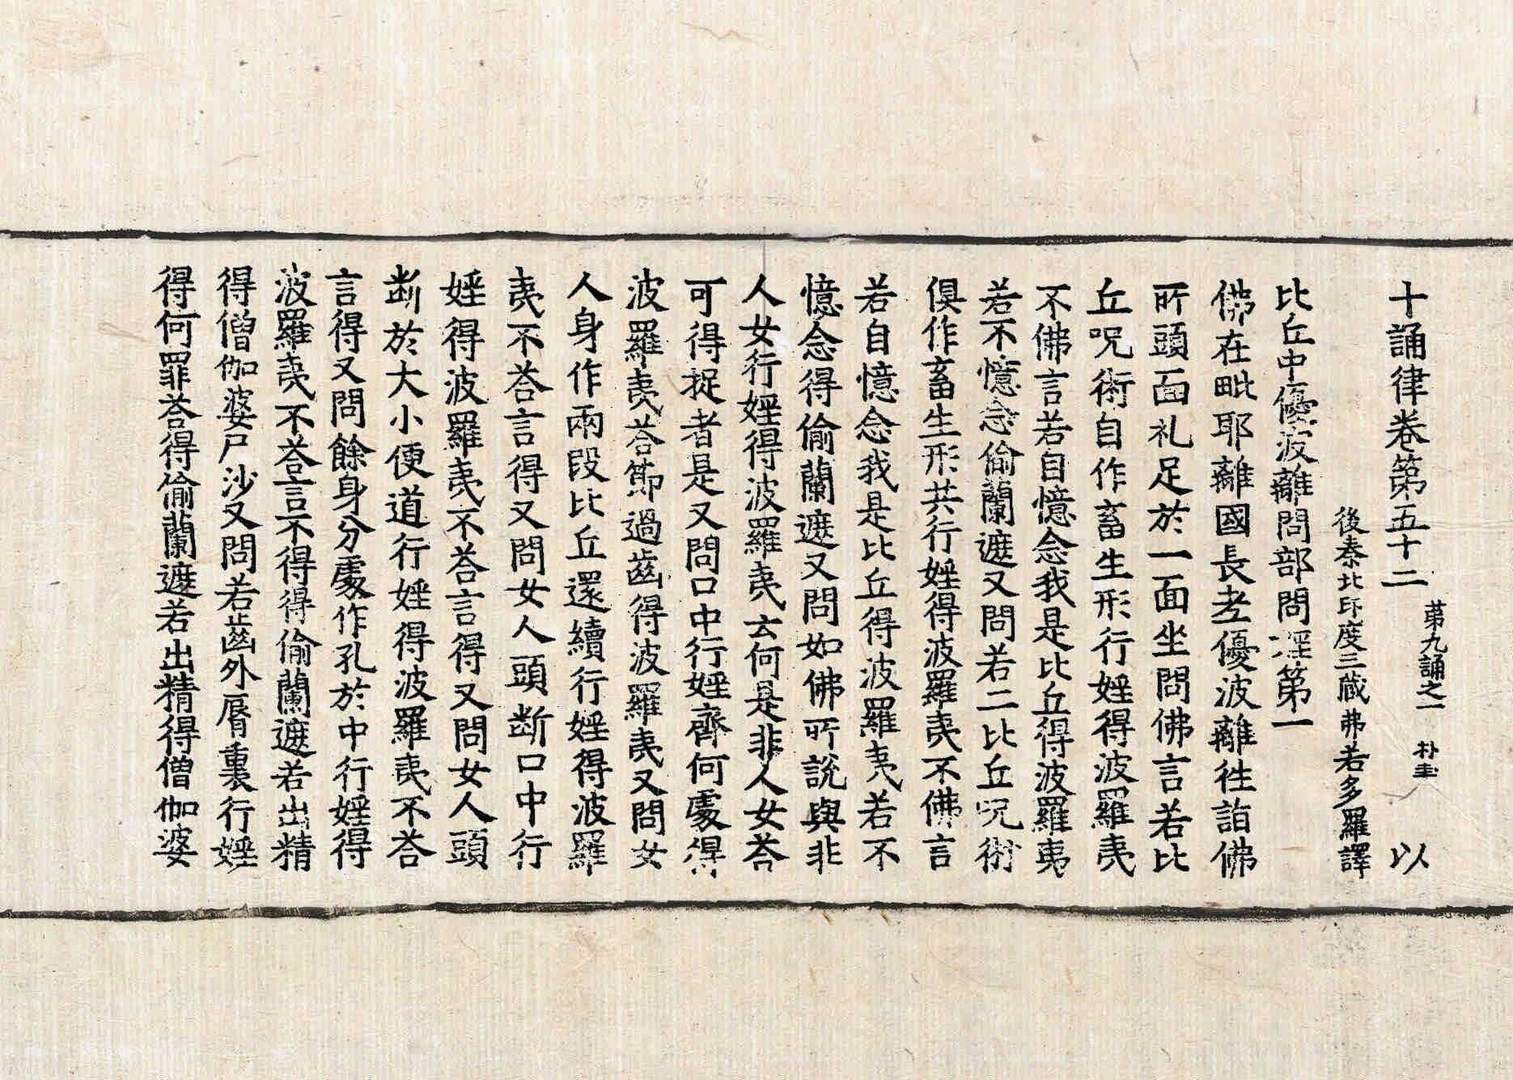 十誦律卷第五十二 第九誦之一 朴圭 以
後秦北印度三藏弗若多羅譯
比丘中優波離問部問婬第一
佛在毗耶離國長老優波離往詣佛
所頭面礼足於一面坐問佛言若比
丘呪術自作畜生形行婬得波羅夷
不佛言若自憶念我是比丘得波羅夷
若不憶念偷蘭遮又問若二比丘呪術
俱作畜生形共行婬得波羅夷不佛言
若自憶念我是比丘得波羅夷若不
憶念得偷蘭遮又問如佛所說與非
人女行婬得波羅夷云何是非人女荅
可得捉者是又問口中行婬齊何處得
波羅夷荅節過齒得波羅夷又問女
人身作兩段比丘還續行婬得波羅
夷不荅言得又問女人頭断口中行
婬得波羅夷不荅言得又問女人頭
断於大小便道行婬得波羅夷不荅
言得又問餘身分處作孔於中行婬得
波羅夷不荅言不得得偷蘭遮若出精
得僧伽婆尸沙又問若齒外脣裏行婬
得何罪荅得偷蘭遮若出精得僧伽婆